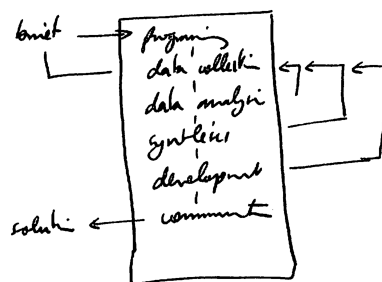 brief
programing
data collection
data analysis
synthesis
development
communication
solution